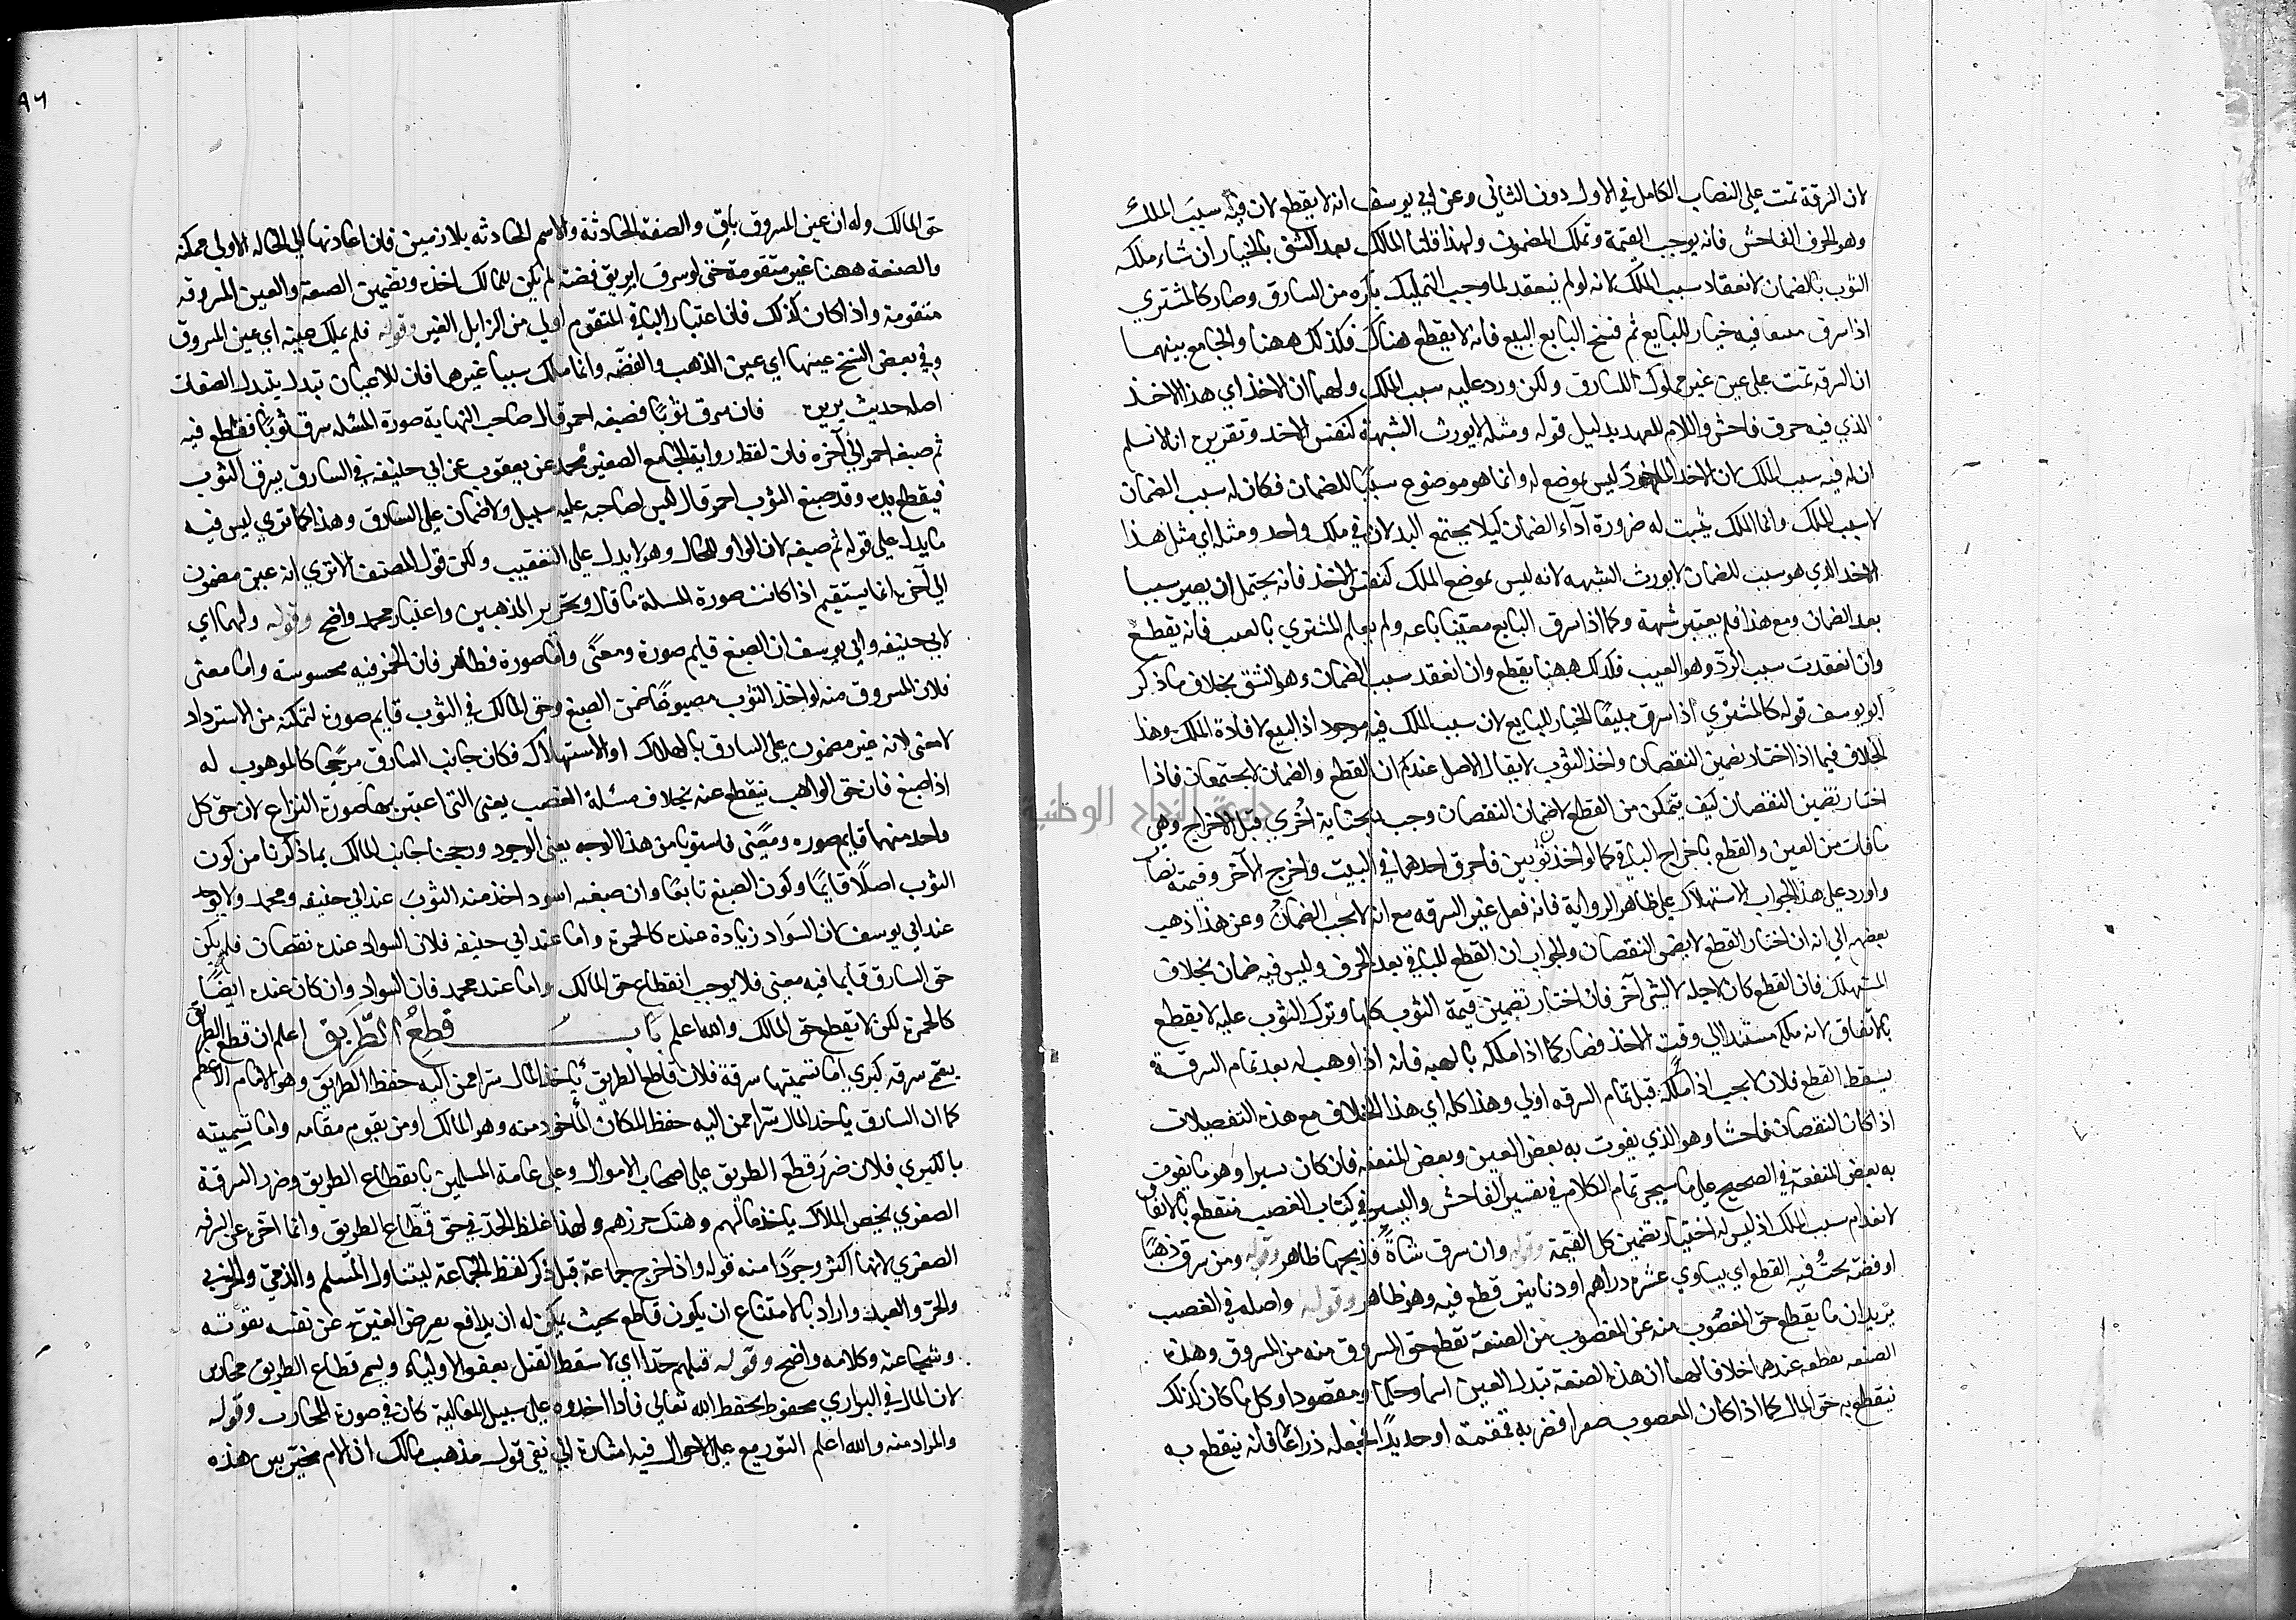 لان السرقة تمت علي النصاب الكامل في الاول دون الثاني وعن ابي يوسف انه لا يقطع لان فيه سبب الملك
وهو الخرق الفاحش فانه يوجب القيمة وتملك المضمون ولهذا قلنا المالك بعد الشق بالخيار ان شاء ملكه
الثوب بالضمان لانعقاد سبب الملك لانه لو لم ينعقد لما وجب التمليك بكره من السارق وصار كالمشتري
اذا سرق مبيعا فيه خيار للبايع ثم فسخ البايع البيع فانه لا يقطع هناك فكذلك ههنا والجامع بينهما
ان السرقه تمت علي عين غير مملوك للسارق ولكن ورد عليه سبب الملك ولهما ان الاخذ اي هذا الاخذ
الذي فيه خرق فاحش واللام للعهد بدليل قوله ومثله لا يورث الشبهة كنفس الاخذ وتقريره انا لا نسلم
ان له فيه سبب الملك لان الاخذ المعهود ليس بموضع له وانما هو موضوع سببًا للضمان فكان له سبب الضمان
لا سبب الملك وانما الملك يثبت له ضرورة اداء الضمان كيلا يجتمع البدلان في ملك واحد ومثله اي مثل هذا
الاخذ الذي هو سبب للضمان لا يورث الشبهه لانه ليس بموضع الملك كنفس الاخذ فانه يحتمل ان يصير سببا
بعد الضمان ومع هذا فلم يعتبر شبهة وكما اذا سرق البايع معيبا باعه ولم يعلم المشتري بالعيب فانه يقطع
وان انعقدت سبب الردّ وهو العيب فكذلك ههنا يقطع وان انعقد سبب الضمان وهو الشق بخلاف ما ذكر
ابو يوسف قوله كالمشتري اذا سرق مبيعًا الخيار للبايع لان سبب الملك فيه موجود اذ البيع لافادة الملك وهذا
الخلاف فيما اذا اختار تضمين النقصان واخذ الثوب لا يقال الاصل عندكم ان القطع والضمان لا يجتمعان فاذا
اختار تضمين النقصان كيف يتمكن من القطع لان ضمان النقصان وجب بجناية اُخري قبل الاخراج وهي
ما فات من العين والقطع باخراج الباقي كما لو اخذ ثوبين فاحرق احدهما في البيت واخرج الآخر وقيمته نصاب
واورد علي هذا الجواب الاستهلاك علي ظاهر الرواية فانه فعل غير السرقه مع انه لا يجب الضمان وعن هذا ذهب
بعضهم الي انه ان اختار القطع لا يضمن النقصان والجواب ان القطع للباقي بعد الخرق وليس فيه ضمان بخلاف
المستهلك فان القطع كان لاجله لا لشئ آخر فان اختار تضمين قيمة الثوب كلها وترك الثوب عليه لا يقطع
بالاتفاق لانه ملكه مستندا الي وقت الاخذ فصار كما اذا ملكه بالهبه فانه اذا وهب له بعد تمام السرقة
يسقط القطع فلان لا يجب اذا ملكه قبل تمام السرقه اولي وهذا كله اي هذا الخلاف مع هذه التفصيلات
اذا كان النقصان فاحشا وهو الذي يفوت به بعض العين وبعض المنفعه فان كان يسيرا وهو ما يفوت
به بعض المنفعة في الصحيح علي ما سيجي تمام الكلام في تفسير الفاحش واليسير في كتاب الغصب فيقطع بالاتفاق
لانعدام سبب الملك اذ ليس له اختيار تضمين كل القيمة وقوله وان سرق شاةً فذبحها ظاهر وقوله ومن سرق ذهبًا
او فضّة يجب فيه القطع اي يساوي عشره دراهم او دنانير قطع فيه وهو ظاهر وقوله واصله في الغصب
يريد ان ما يقطع حق المغصوب منه عن المغصوب من الصنعة يقطع حق المسروق منه من المسروق وهذه
الصنعه يقطعه عندهما خلافا له لهما ان هذه الصنعة تبدل العين اسما وحكمًا ومقصودا وكل ما كان كذلك
ينقطع به حق المالك كما اذا كان المغصوب صفرا فضربه قمقمة او حديدًا فجعله درعًا فانه ينقطع به
حق المالك وله ان عين المسروق باقٍ والصفة الحادثة والاسم الحادثه بلازمين فان اعادتها الي الحاله الاولي ممكنه
والصنعة ههنا غير متقومة حتى لو سرق ابريق فضة لم يكن للمالك اخذه وتضمين الصنعة والعين المسروقه
متقومة واذا كان كذلك فان اعتبار الباقي المتقوم اولي من الزايل الغير وقوله فلم يملك عينه اي عين المسروق
وفي بعض النسخ عينها اي عين الذهب والفضّه وانما ملك سببا غيرهما فان للاعيان تبدلا يتبدل الصفات
اصله حديث بريرة فان سرق ثوبًا فصبغه احمر قال صاحب النهاية صورة المسئله سرق ثوبًا فقطع فيه
ثم صبغه احمر الي آخره فان لفظ رواية الجامع الصغير محمد عن يعقوب عن ابي حنيفه في السارق يسرق الثوب
فيقطع يده وقد صبغ الثوب احمر قال ليس لصاحبه عليه سبيل ولا ضمان علي السارق وهذا كما تري ليس فيه
ما يدل علي قوله ثم صبغه لان الواو للحال وهو لا يدل علي التعقيب ولكن قول المصنف الا تري انه غير مضمون
الي آخره انما يستقيم اذا كانت صورة المسلة ما قال وتحرير المذهبين واعتبار محمد واضح وقوله ولهما اي
لابي حنيفه وابي يوسف ان الصبغ قايم صورة ومعنًي واما صورة فظاهر فان الحمرة فيه محسوسة واما معنى
فلان المسروق منه لو اخذ الثوب مصبوغًا ضمن الصبغ وحق المالك في الثوب قايم صورة لتمكنه من الاسترداد
لا معنى لانه غير مضمون علي السارق بالهلاك او الاستهلاك فكان جانب السارق مرجحًا كالموهوب له
اذا صبغ فان حق الواهب ينقطع عنه بخلاف مسئلة الغصب يعني التي اعتبر بها صورة النزاع لان حق كل
واحد منهما قايم صوره ومعنًى فاستويا من هذا الوجه يعني الوجود ورجحنا جانب المالك بما ذكرنا من كون
الثوب اصلًا قايمًا وكون الصبغ تابعًا وان صبغه اسود اخذ منه الثوب عند ابي حنيفه ومحمد ولا يوخذ
عند ابي يوسف لان السواد زيادة عنده كالحمرة واما عند ابي حنيفه فلان السواد عنده نقصان فلم يكن
حق السارق قايما فيه معنى فلا يوجب انقطاع حق المالك واما عند محمد فان السواد وان كان عنده ايضًا
كالحمرة لكن لا يقطع حق المالك والله اعلم باب قطع الطريق اعلم ان قطع الطريق
يسمى سرقه كبري اما تسميتها سرقة فلان قاطع الطريق ياخذ المال سرّا ممن اليه حفظ الطريق وهو الامام الاعظم
كما ان السارق ياخذ المال سرّا ممن اليه حفظ المكان المأخوذ منه وهو المالك او من يقوم مقامه واما تسميته
بالكبري فلان ضرر قطع الطريق علي اصحاب الاموال وعلي عامة المسلمين بانقطاع الطريق وضرر السرقة
الصغري يخص الملاك باخذ مالهم وهتك حرزهم ولهذا غلظ الحدّ في حق قطّاع الطريق وانما آخره عن السرقه
الصغري لانها اكثر وجودًا منه قوله واذا خرج جماعة قيل ذكر لفظ الجماعة ليتناول المسلم والذميّ والحربي
والحرّ والعبد واراد بالامتناع ان يكون قاطع بحيث يمكن له ان يدافع تعرض الغير عن نفسه بقوته
وشجاعته وكلامه واضح وقوله قتلهم حدّا اي لا سقط القتل بعفو الاولياء ويسمى قطاع الطريق محاربين
لان المال في البراري محفوظ بحفظ الله تعالي فاذا اخذوه علي سبيل المغالبة كان في صورة المحارب وقوله
والمراد منه والله اعلم التوزيع علي الاحوال فيه اشارة الي نفي قول مذهب مالك ان الامام مخير بين هذه